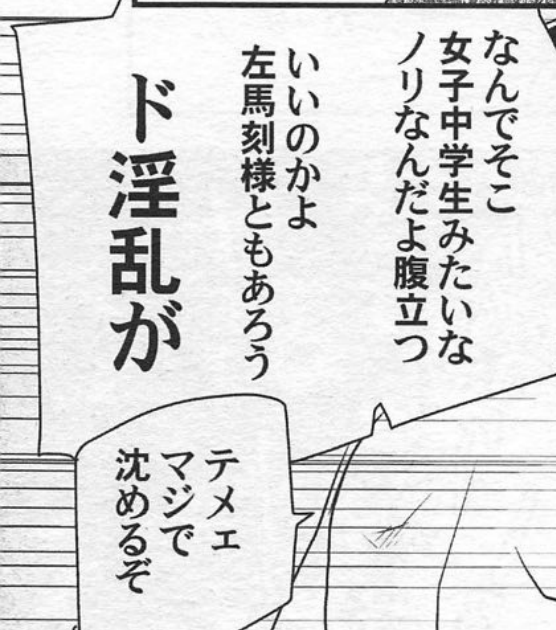 なんでそこ
女子中学生みたいな
ノリなんだよ腹立つ
いいのかよ
左馬刻様ともあろう
ド淫乱が
テメェ
マジで
沈めるぞ